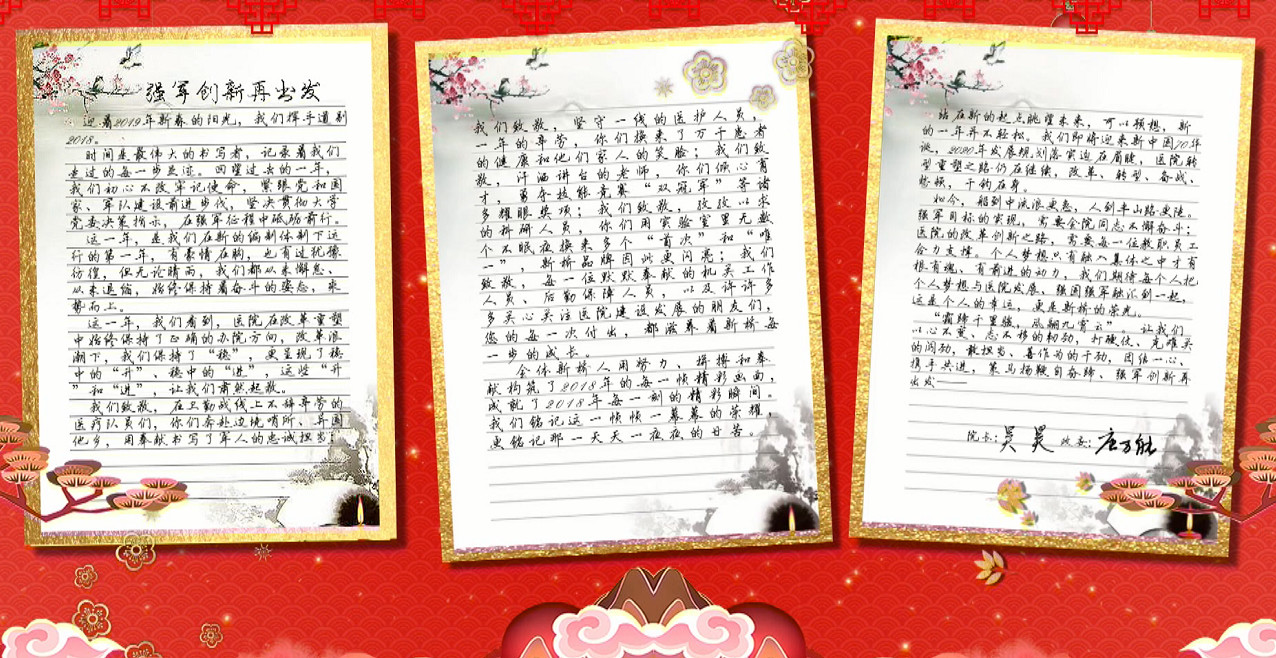 强军创新再出发
迎着2019年新春的阳光，我们挥手道别
2018。
时间是最伟大的书写者，记录着我们
走过的每一步足迹。回望过去的一年，
我们初心不改牢记使命，紧跟党和国
家、军队建设前进步伐，坚决贯彻大学
党委决策指示，在强军征程中砥砺前行。
这一年，是我们在新的编制体制下运
行的第一年，有豪情在胸，也有过犹豫
彷徨，但无论晴雨，我们都从未懈怠、
从未退缩，始终保持着奋斗的姿态，乘
势而上。
这一年，我们看到，医院在改革重塑
中始终保持了正确的办院方向，改革浪
潮下，我们保持了“稳”，更呈现了稳
中的“升”、稳中的“进”，这些“升
”和“进”，让我们肃然起敬。
我们致敬，在卫勤战线上不辞辛劳的
医疗队员们，你们奔赴边境哨所、异国
他乡，用奉献书写了军人的忠诚担当；
我们致敬，坚守一线的医护人员，
一年的辛劳，你们换来了万千患者
的健康和他们家人的笑脸；我们致
敬，汗洒讲台的老师，你们倾心育
才，勇夺技能竞赛“双冠军”等诸
多耀眼奖项；我们致敬，孜孜以求
的科研人员，你们用实验室里无数
个不眠夜换来多个“首次”和“唯
一”，新桥品牌因此更闪亮；我们
致敬，每一位默默奉献的机关工作
人员、后勤保障人员，以及许许多
多关心关注医院建设发展的朋友们，
您的每一次付出，都滋养着新桥每
一步的成长。
全体新桥人用努力、拼搏和奉
献构筑了2018年的每一帧精彩画面，
成就了2018年每一刻的精彩瞬间。
我们铭记这一帧帧一幕幕的荣耀，
更铭记那一天天一夜夜的甘苦。
站在新的起点眺望未来，可以预想，新
的一年并不轻松。我们即将迎来新中国70华
诞，2020年发展规划落实迫在眉睫，医院转
型重塑之路仍在继续，改革、转型、备战、
整顿，千钧在身。
如今，船到中流浪更急，人到半山路更陡。
强军目标的实现，需要全院同志不懈奋斗；
医院的改革创新之路，需要每一位教职员工
合力支撑。个人梦想只有融入集体之中才有
根有魂、有前进的动力，我们期待每个人把
个人梦想与医院发展、强国强军融汇到一起，
这是个人的幸运，更是新桥的荣光。
“霜蹄千里骏，风翮九霄云”。让我们
以心不变、志不移的韧劲，打硬仗、克难关
的闯劲，敢担当、善作为的干劲，团结一心、
携手共进，策马扬鞭自奋蹄、强军创新再
出发——
院长：吴昊 政委：唐万能